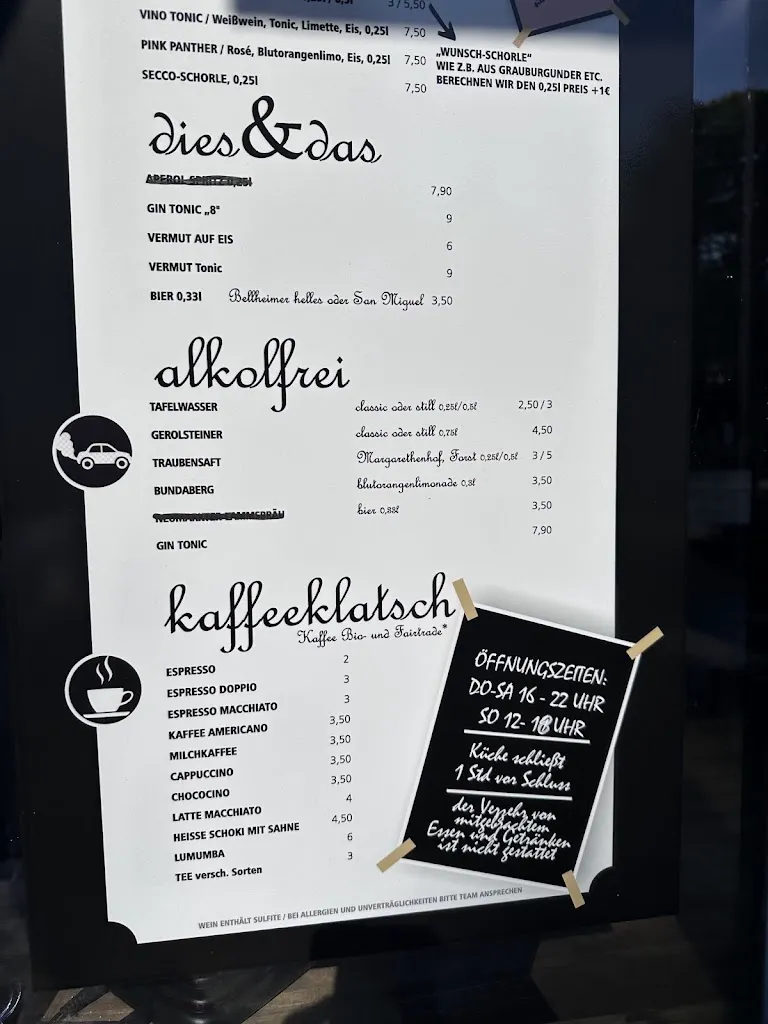 3 / 5,50
VINO TONIC / Weißwein, Tonic, Limette, Eis, 0,25l 7,50
PINK PANTHER / Rosé, Blutorangenlimo, Eis, 0,25l 7,50
SECCO-SCHORLE, 0,25l 7,50
„WUNSCH-SCHORLE“
WIE Z.B. AUS GRAUBURGUNDER ETC.
BERECHNEN WIR DEN 0,25l PREIS +1€
dies&das
APEROL SPRITZ 0,25l 7,90
GIN TONIC „8“ 9
VERMUT AUF EIS 6
VERMUT Tonic 9
BIER 0,33l Bellheimer helles oder San Miguel 3,50
alkolfrei
TAFELWASSER classic oder still 0,25l/0,5l 2,50 / 3
GEROLSTEINER classic oder still 0,75l 4,50
TRAUBENSAFT Margarethenhof, Forst 0,25l/0,5l 3 / 5
BUNDABERG blutorangenlimonade 0,3l 3,50
NEUMARKTER LAMMSBRÄU bier 0,33l 3,50
GIN TONIC 7,90
kaffeeklatsch
Kaffee Bio- und Fairtrade*
ESPRESSO 2
ESPRESSO DOPPIO 3
ESPRESSO MACCHIATO 3
KAFFEE AMERICANO 3,50
MILCHKAFFEE 3,50
CAPPUCCINO 3,50
CHOCOCINO 3,50
LATTE MACCHIATO 4
HEISSE SCHOKI MIT SAHNE 4,50
LUMUMBA 6
TEE versch. Sorten 3
ÖFFNUNGSZEITEN:
DO-SA 16 - 22 UHR
SO 12- 18 UHR
Küche schließt
1 Std vor Schluss
der Verzehr von
mitgebrachtem
Essen und Getränken
ist nicht gestattet
WEIN ENTHÄLT SULFITE / BEI ALLERGIEN UND UNVERTRÄGLICHKEITEN BITTE TEAM ANSPRECHEN